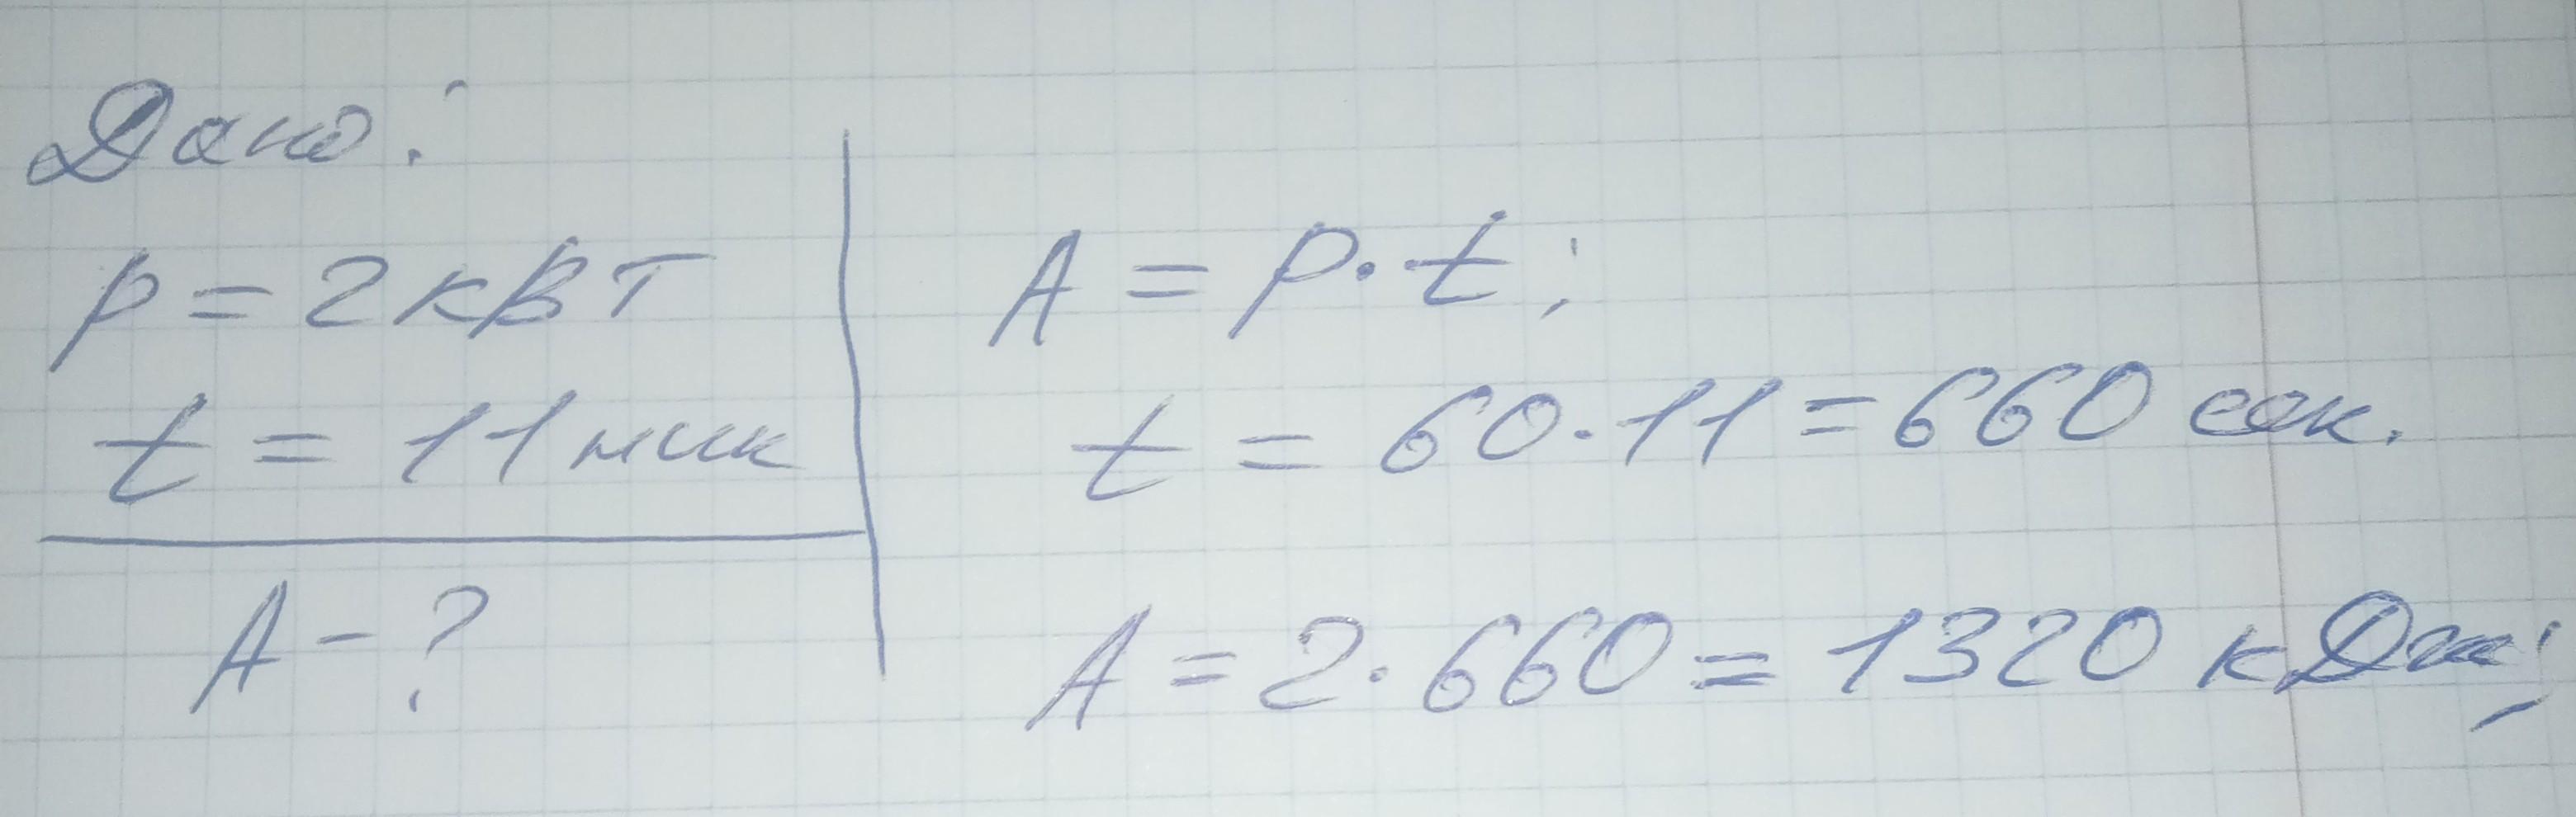 Дано:
p = 2 кВт
t = 11 мин
A - ?
A = p · t;
t = 60 · 11 = 660 сек.
A = 2 · 660 = 1320 кДж;